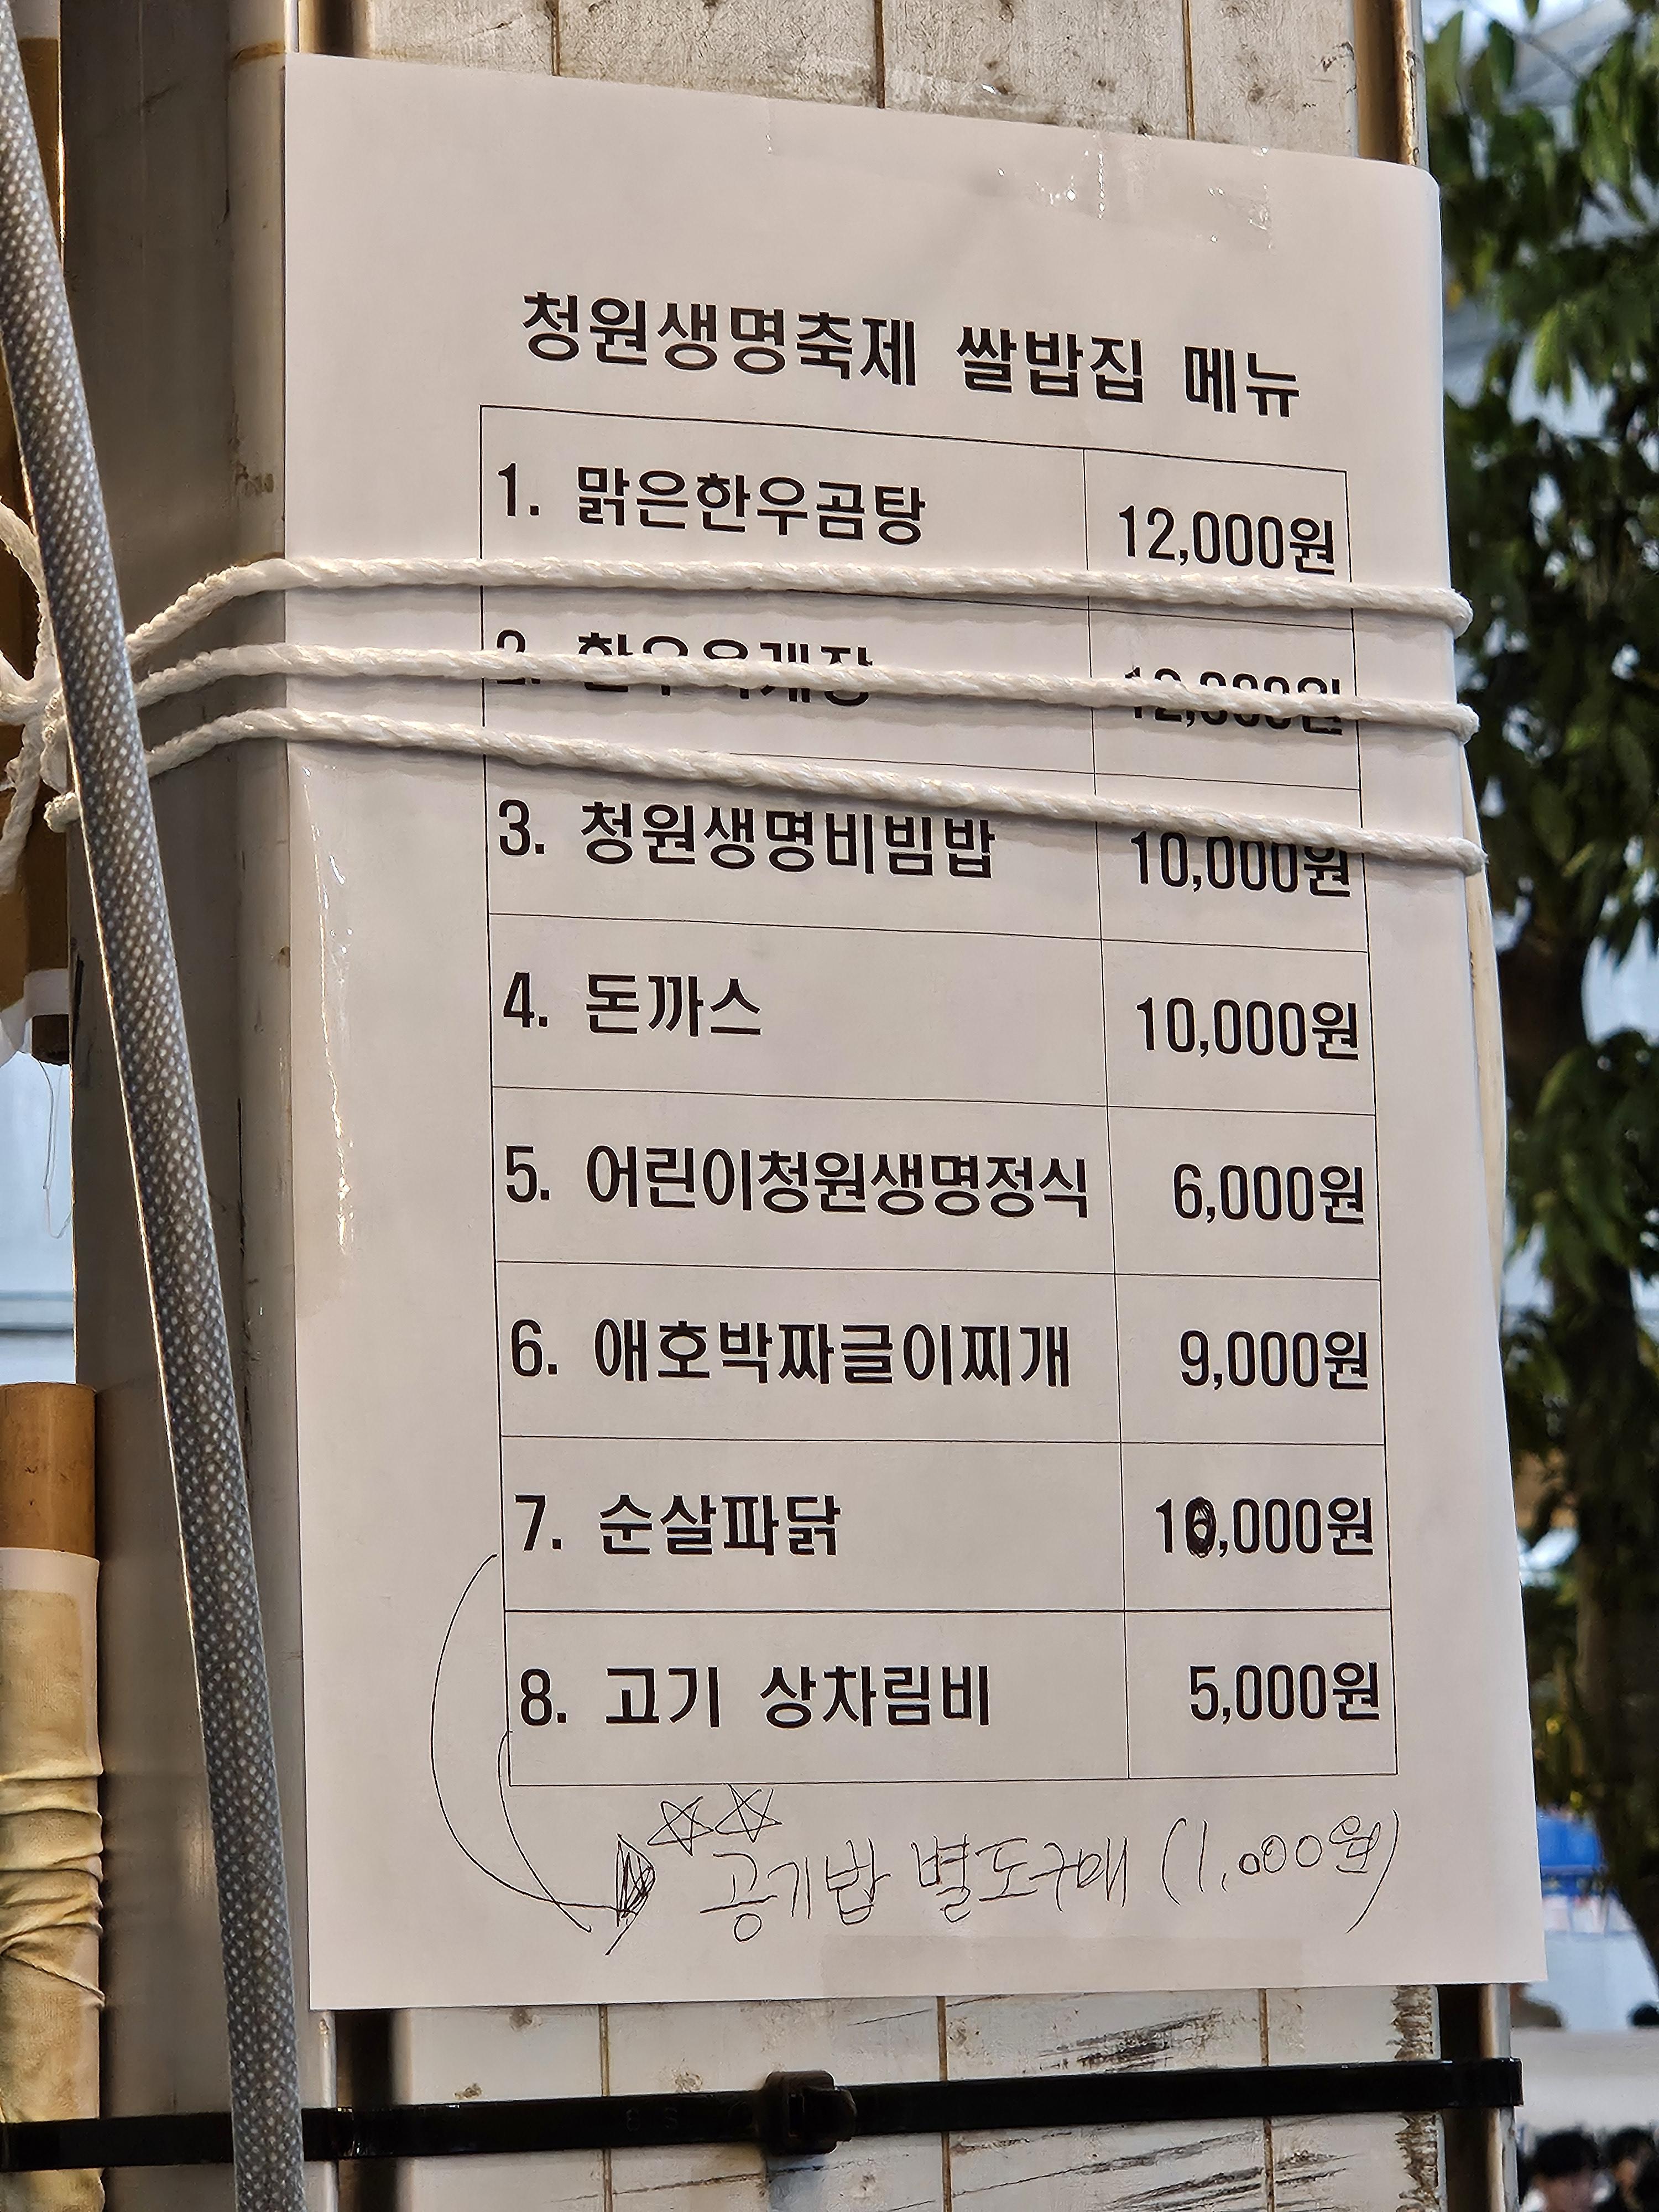 청원생명축제 쌀밥집 메뉴
1. 맑은한우곰탕 12,000원
2. 한우육개장 12,000원
3. 청원생명비빔밥 10,000원
4. 돈까스 10,000원
5. 어린이청원생명정식 6,000원
6. 애호박짜글이찌개 9,000원
7. 순살파닭
8. 고기 상차림비 5,000원
공기밥 별도구매 (1,000원)